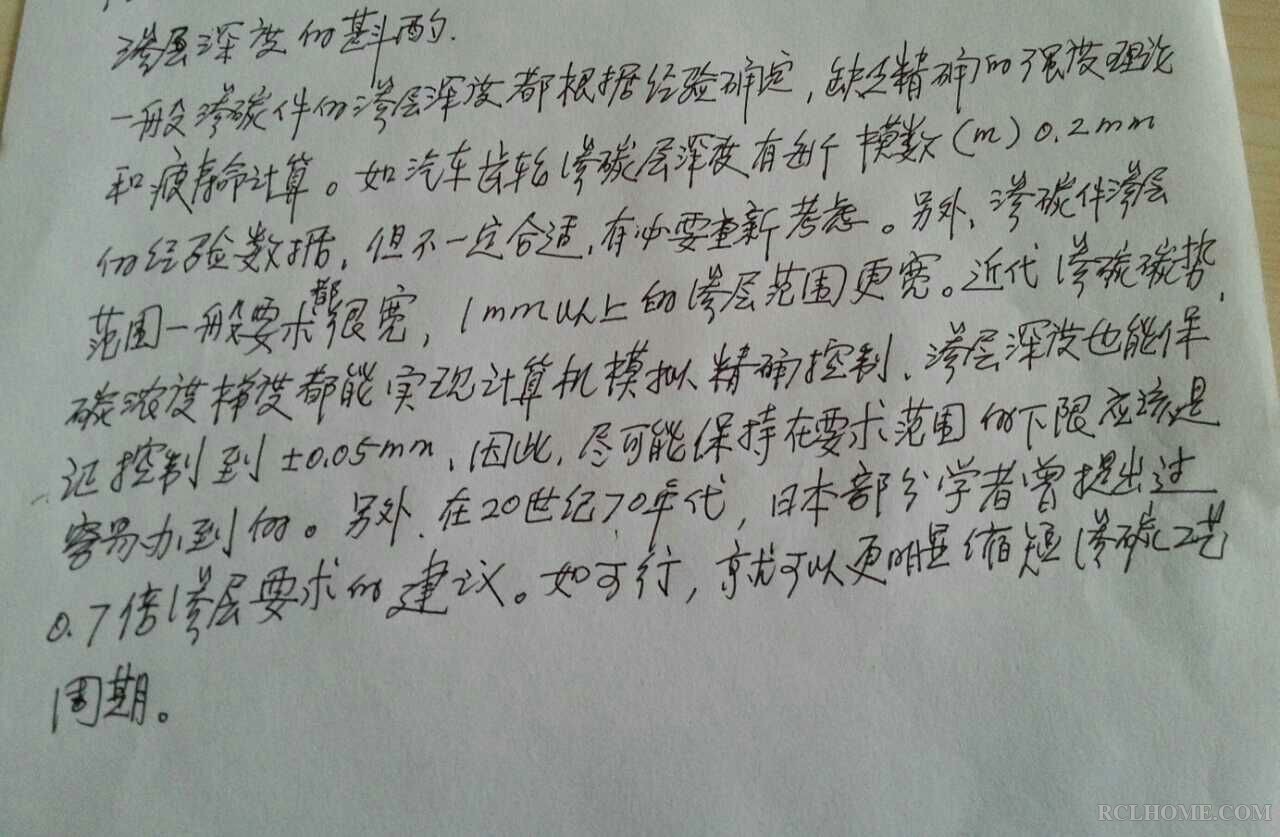 渗层深度的斟酌.
一般渗碳件的渗层深度都根据经验确定，缺乏精确的强度理论
和疲寿命计算。如汽车齿轮渗碳层深度有每个模数(m)0.2mm
的经验数据，但不一定合适，有必要重新考虑。另外、渗碳件渗层
范围一般要求都很宽，1mm以上的渗层范围更宽。近代渗碳碳势、
碳浓度梯度都能实现计算机模拟精确控制、渗层深度也能保
证控制到±0.05mm、因此，尽可能保持在要求范围的下限应该是
容易办到的。另外、在20世纪70年代，日本部分学者曾提出过
0.7倍渗层要求的建议。如可行，就可以更明显缩短渗碳工艺
周期。
RCLHOME.COM